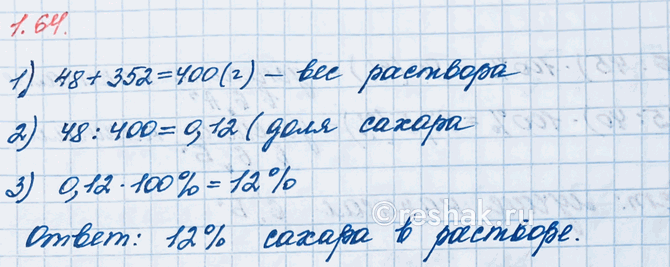 1.64.
1) 48 + 352 = 400 (г) – вес раствора
2) 48 : 400 = 0,12 ( доля сахара
3) 0,12 · 100% = 12%
Ответ: 12% сахара в растворе.
©reshak.ru